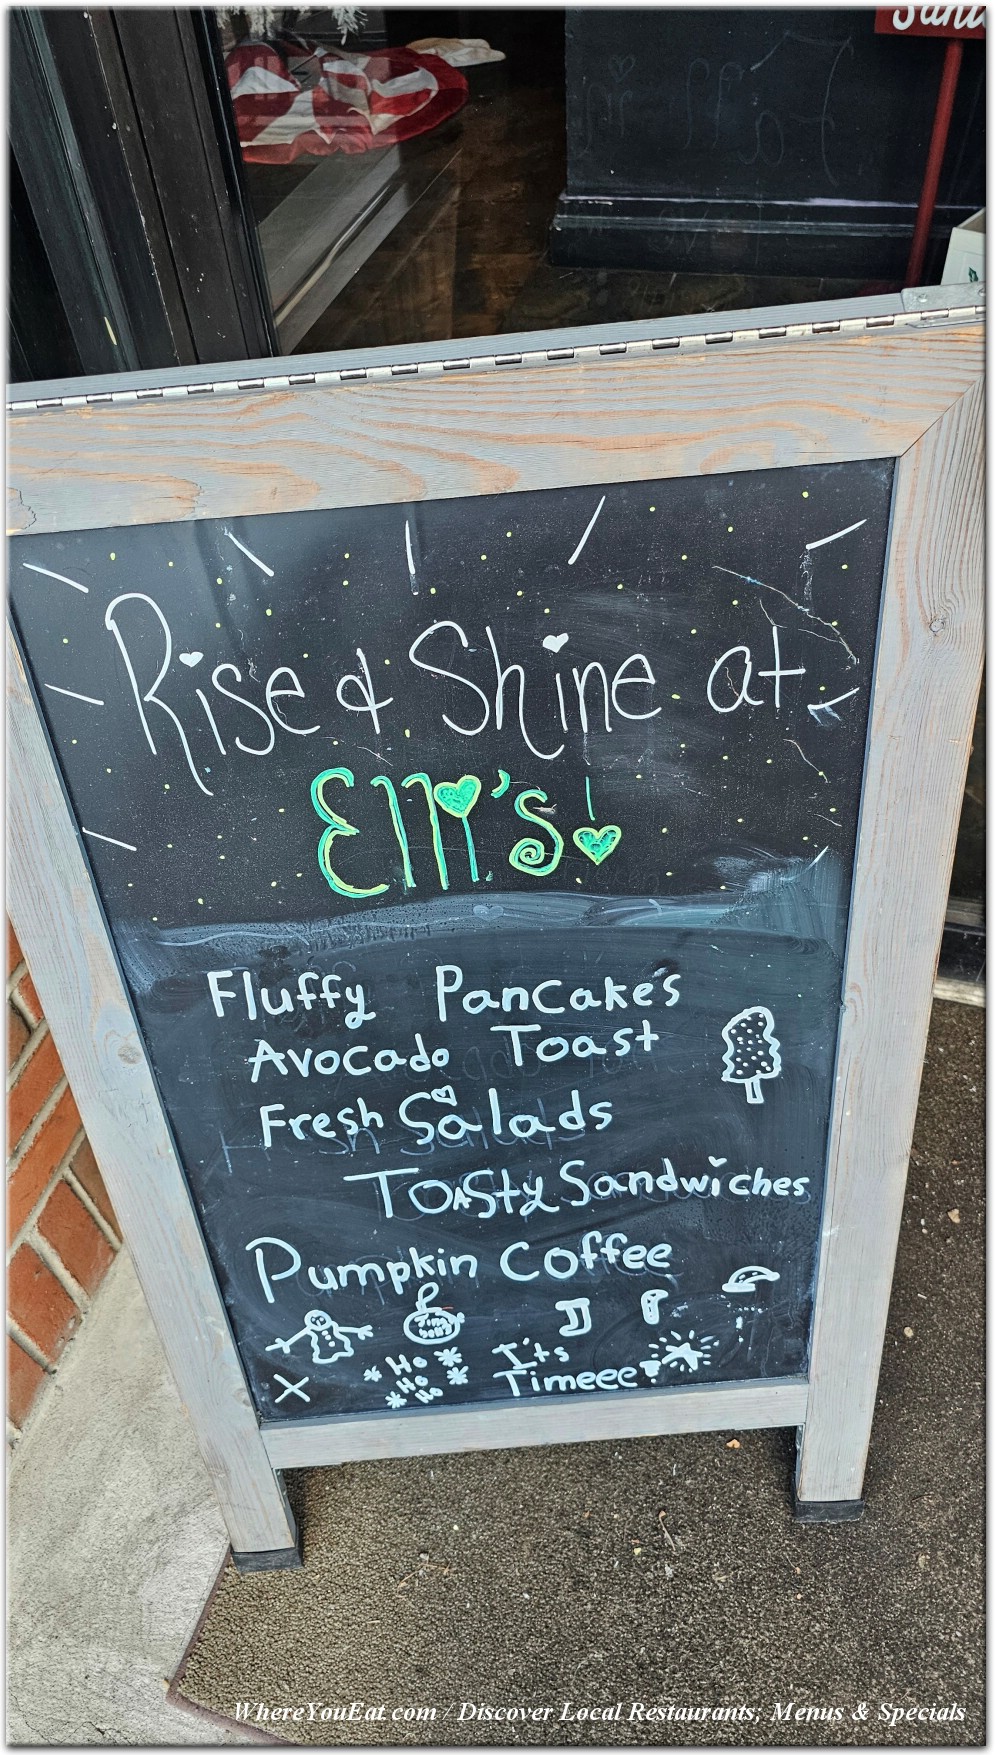 Rise & Shine at
Elli's!
Fluffy Pancakes
Avocado Toast
Fresh Salads
Toasty Sandwiches
Pumpkin Coffee
Jingle bells
Ho
Ho
Ho
It's
Timeee!
WhereYouEat.com / Discover Local Restaurants, Menus & Specials